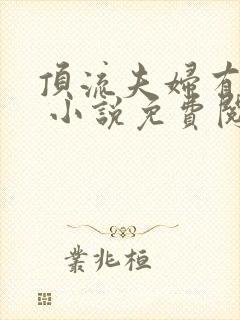 頂流夫婦有
小說免費閱
業兆桓